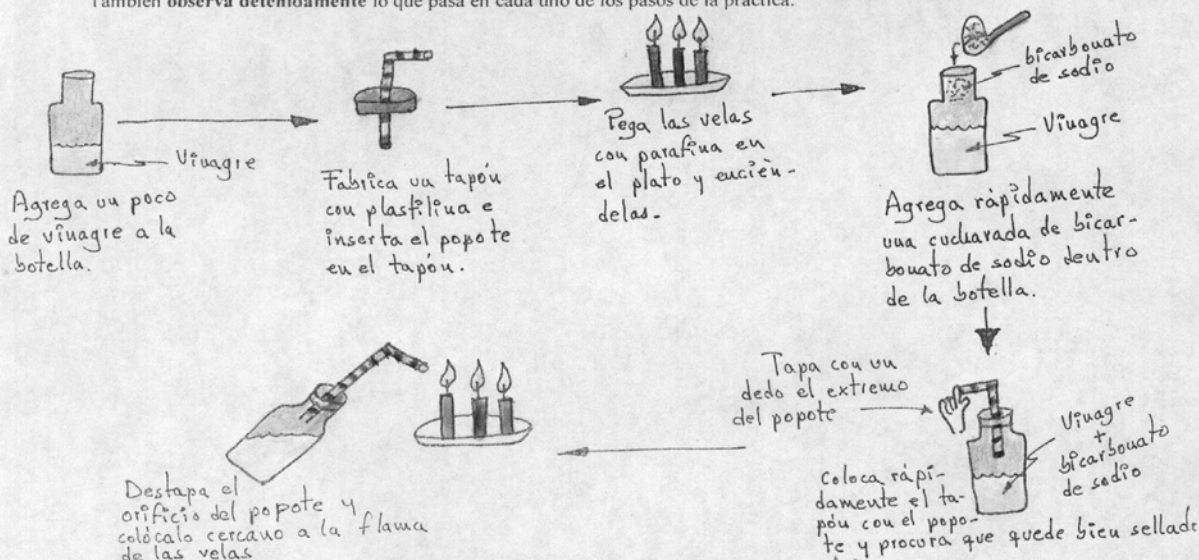 También observa detenidamente lo que pasa en cada uno de los pasos de la práctica.
Vinagre
Agrega un poco
de vinagre a la
botella.
Fabrica un tapón
con plastilina e
inserta el popote
en el tapón.
Pega las velas
con parafina en
el plato y encién-
delas.
bicarbonato
de sodio
Vinagre
Agrega rápidamente
una cucharada de bicar-
bonato de sodio dentro
de la botella.
Tapa con un
dedo el extremo
del popote
Vinagre
+
bicarbonato
de sodio
Coloca rápi-
damente el ta-
pón con el popo-
te y procura que quede bien sellado
Destapa el
orificio del popote y
colócalo cercano a la flama
de las velas